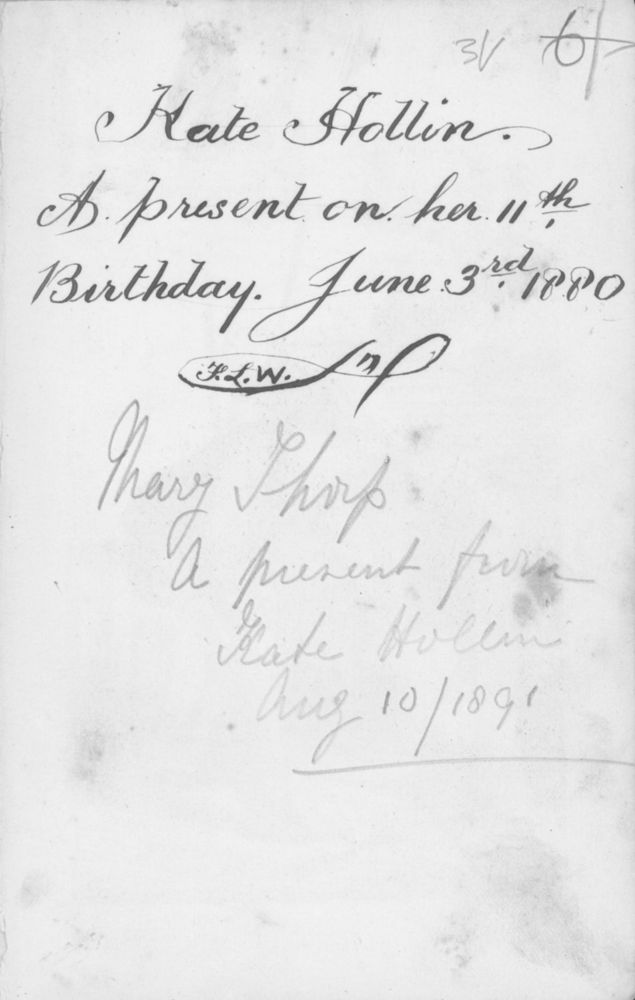 3/ 6/-
Kate Hollin.
A present on her 11th
Birthday. June 3rd. 1880
F.L.W.
Mary Thorp
A present from
Kate Hollin
Aug 10/1891